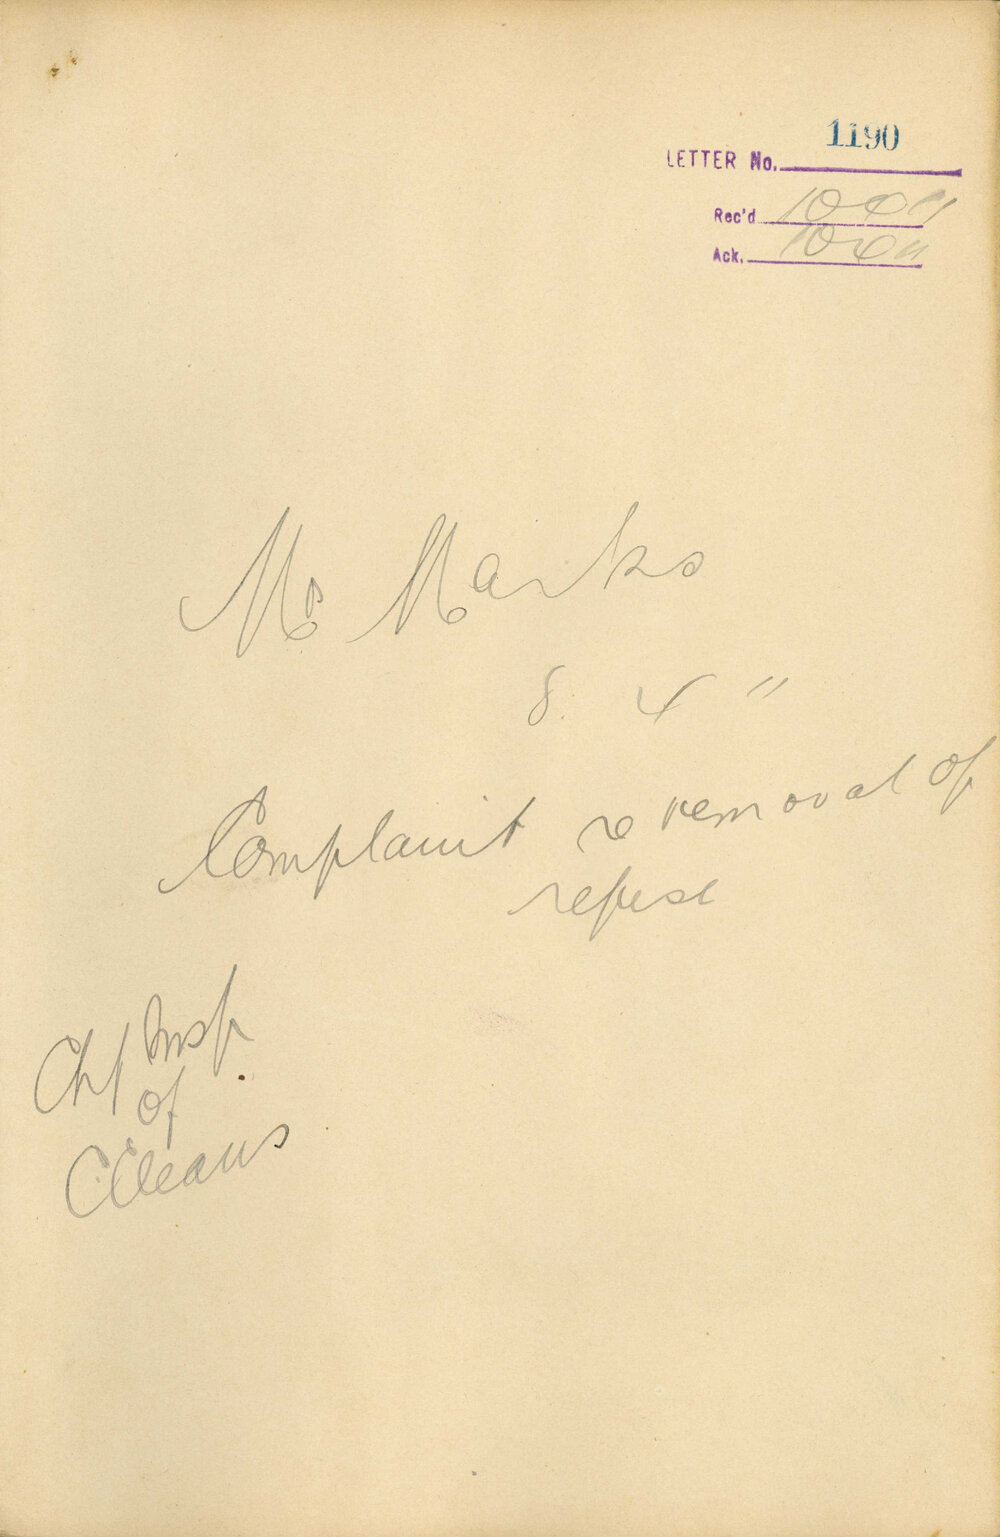 LETTER No. 1190
Rec'd 10 4 11
Ack. 10 4 11
Marks
8. 4 11
Complaint re removal of
refuse
Chf Insp
of
Cleans